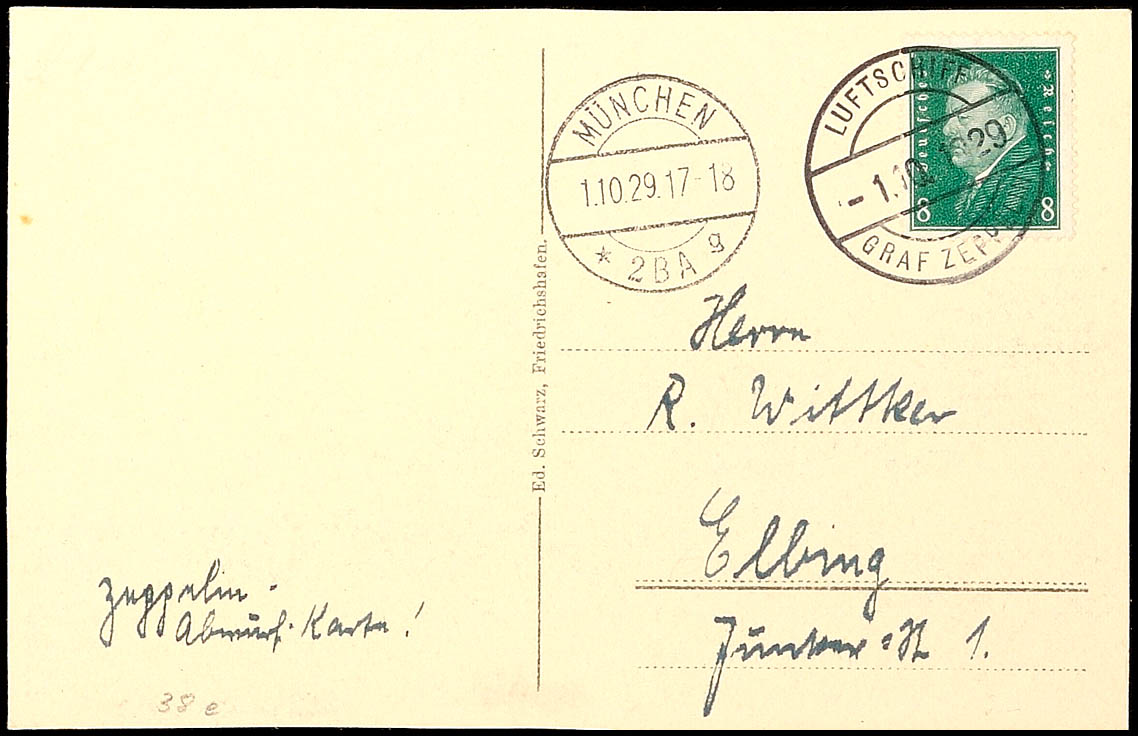 MÜNCHEN
1.10.29.17-18
* 2BA g
LUFTSCHIFF
- 1.10. 1929
GRAF ZEPP
Deutsches
Reich
8
8
Ed. Schwarz, Friedrichshafen.
Herrn
R. Wittker
Elbing
Junker-St 1.
Zeppelin-
Abwurf-Karte!
38 e